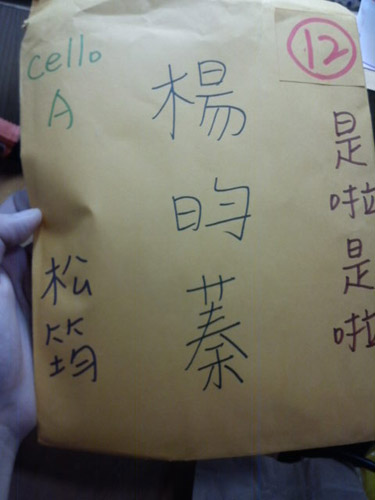 cello
A
松筠
楊昀蓁
12
是啦是啦